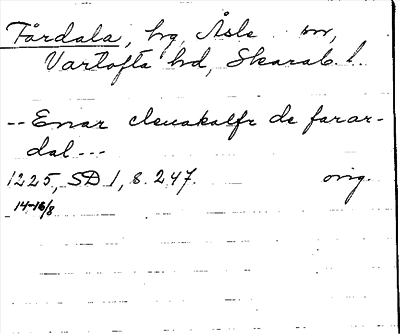 Fårdala, hg, Åsle sn,
Vartofta hd, Skarab. l.
-- Enar clenakalfr de farar-
dal ---
1225, SD 1, s. 247. orig.
14-16/8